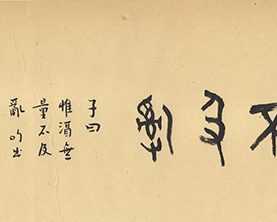 不及亂
子曰
惟酒無
量不及
亂 出